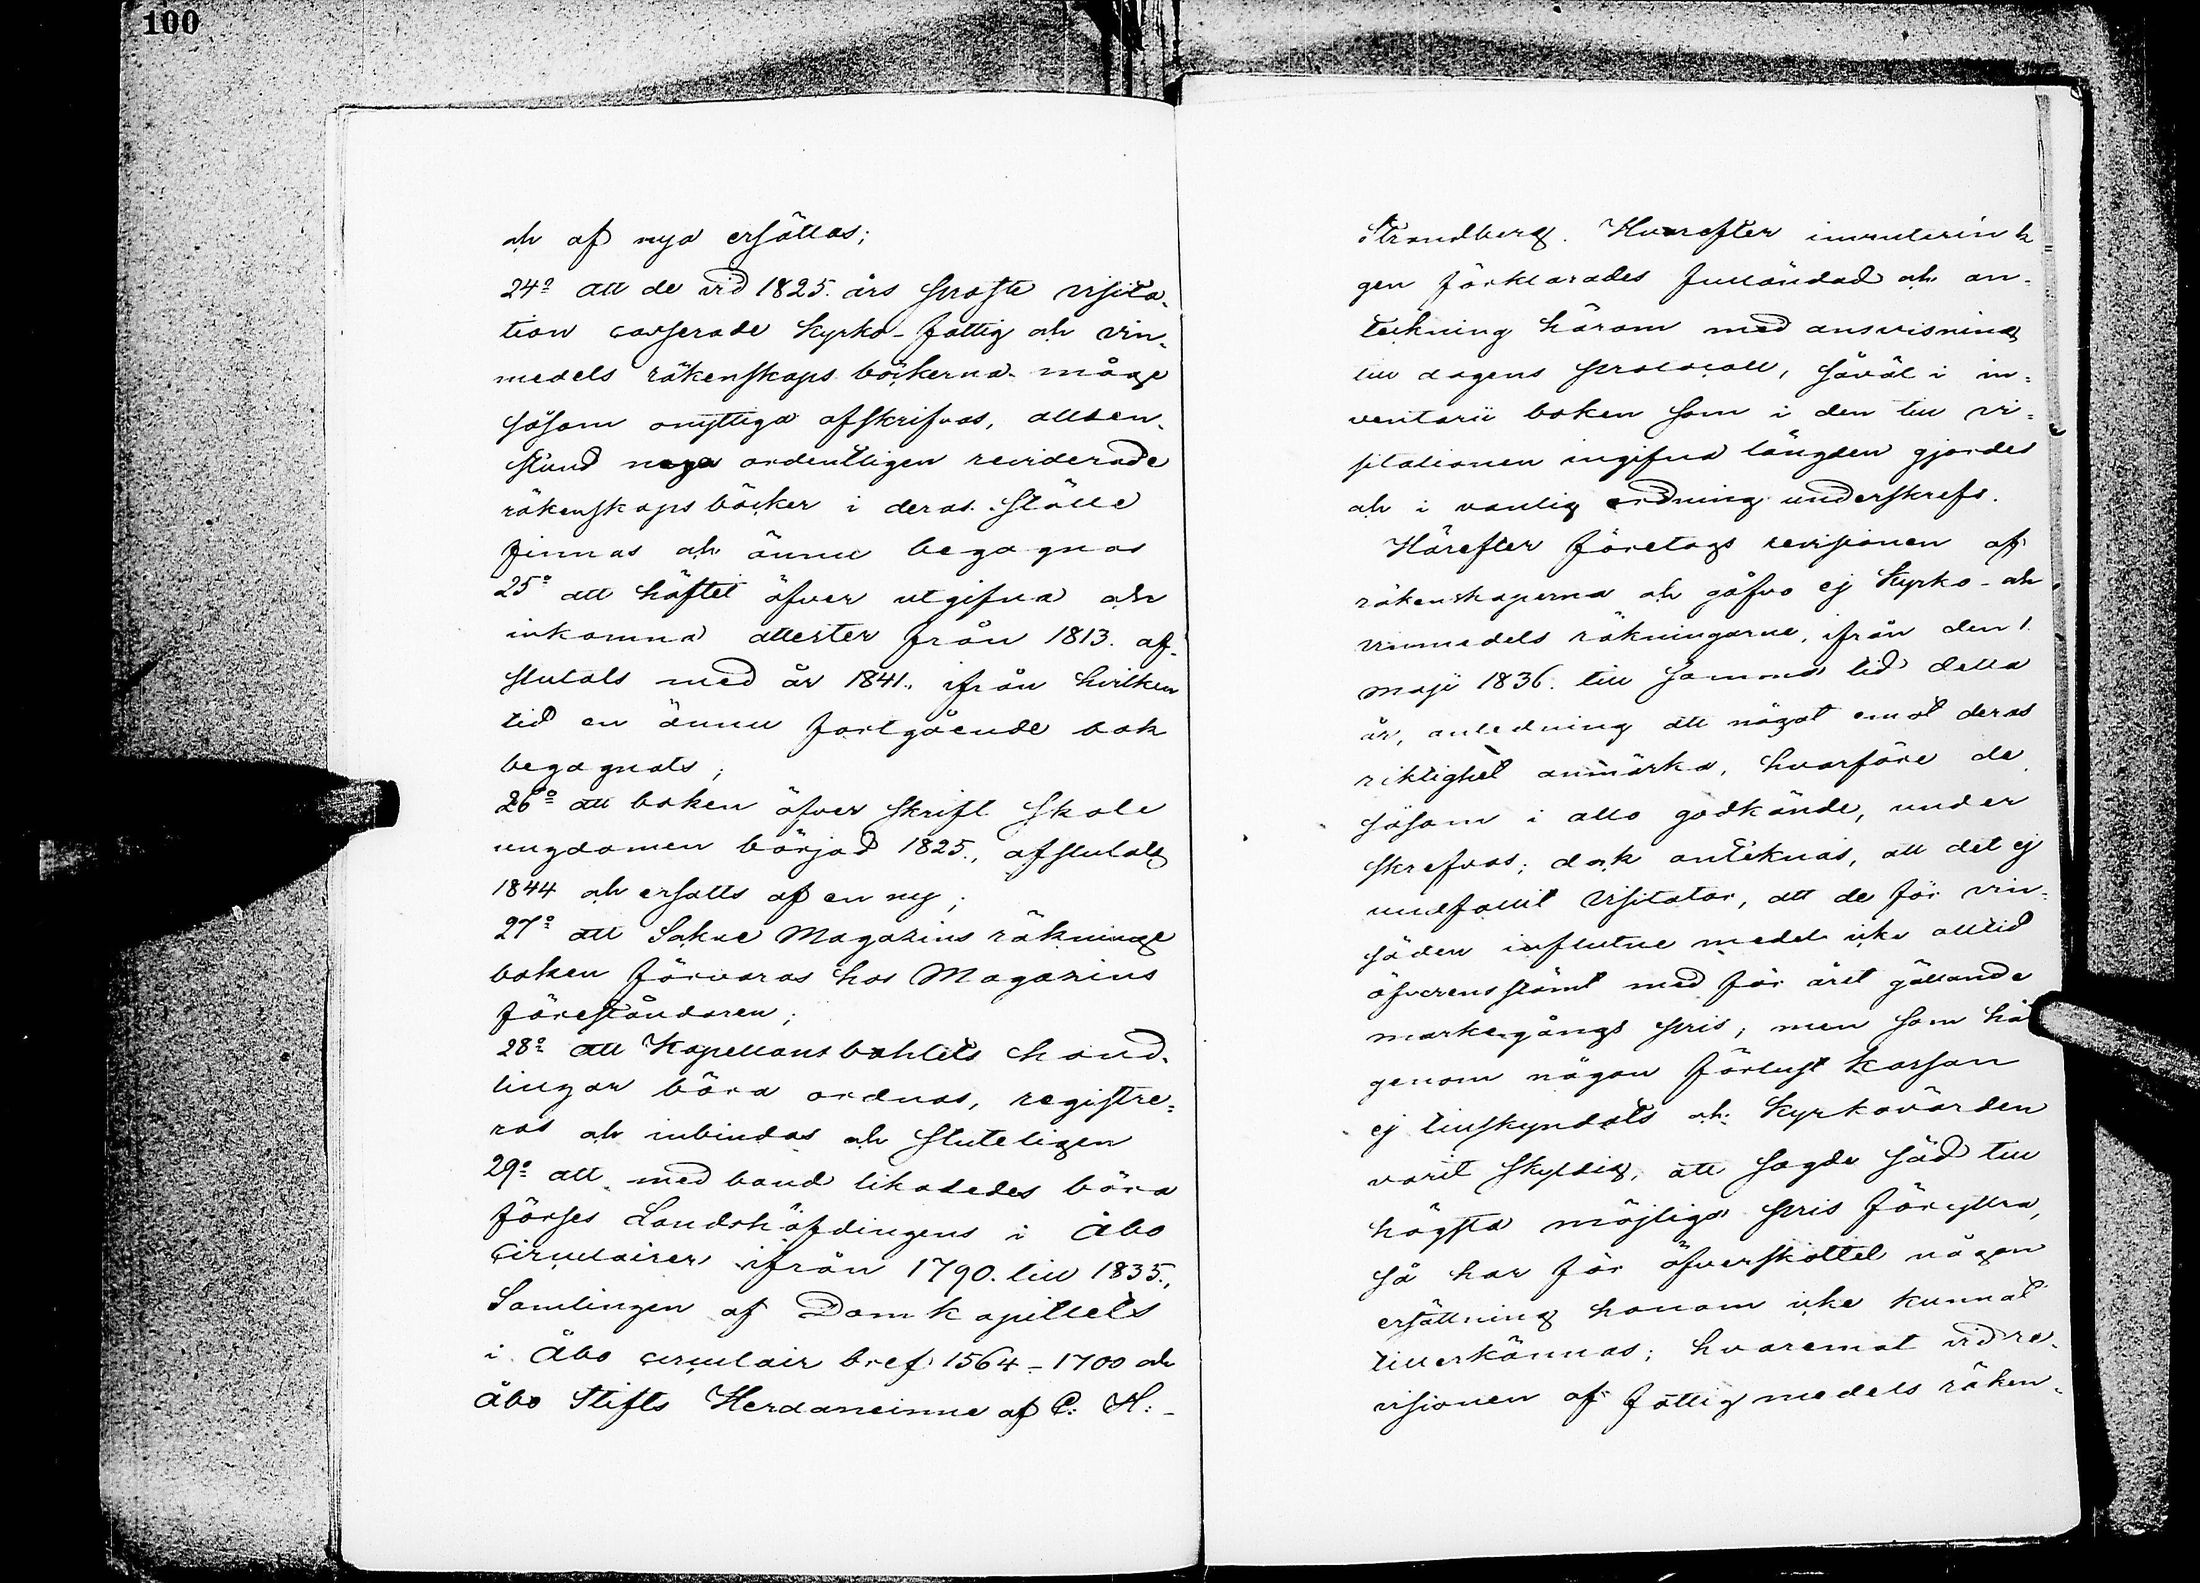 100
och af nya ersättas;
24:o att de vid 1825. års proste visita-
tion casserade kyrko-fattig och vin-
medels räkenskaps böckerna måge
såsom onyttiga afskrifvas, alden-
stund noga ordentligen reviderade
räkenskapsböcker i deras ställe
finnas och ännu begagnas
25:o att häftet öfver utgifna och
inkomna attester från 1813. af-
slutats med år 1841., ifrån hvilken
tid en ännu fortgående bok
begagnats;
26:o att boken öfver skrift skole
ungdomen börjad 1825., afslutats
1844 och ersatts af en ny;
27:o att Sokne Magazins räkninge
boken förvaras hos Magazins
föreståndaren;
28:o att Kapellansbohlets hand-
lingar böra ordnas, registre-
ras och inbindas och sluteligen
29:o att med band likaledes böra
förses Landshöfdingens i Åbo
Circulairer ifrån 1790. till 1835.,
Samlingen af Domkapitlets
i Åbo circulair bref 1564-1700 och
Åbo Stifts Herdaminne af C: H:-
Strandberg. Hvarefter inventerin
gen förklarades fulländad och an-
teckning härom med ansvisning
till dagens protocoll, såväl i in-
ventarii boken som i den till vi-
sitationen ingifna längden gjordes
och i vanlig ordning underskrefs.
Härefter företogs revisionen af
räkenskaperna och gåfvo ej kyrko- och
vinmedels räkningarne, ifrån den 1.
maji 1836. till samma tid detta
år, anledning att något emot deras
riktighet anmärka, hvarföre de
såsom i allo godkände, under
skrefvos; dock antecknas, att det ej
undfallit Visitator, att de för vin-
säden influtne medel icke alltid
öfverensstämt med för året gällande
markegångs pris; men som här
genom någon förlust kassan
ej tillskyndats och Kyrkovärden
varit skyldig, att sagde säd till
högsta möjliga pris föryttra,
så har för öfverskottet någon
ersättning honom icke kunnat
tillerkännas; hvaremot vid re-
visionen af fattigmedels räken-